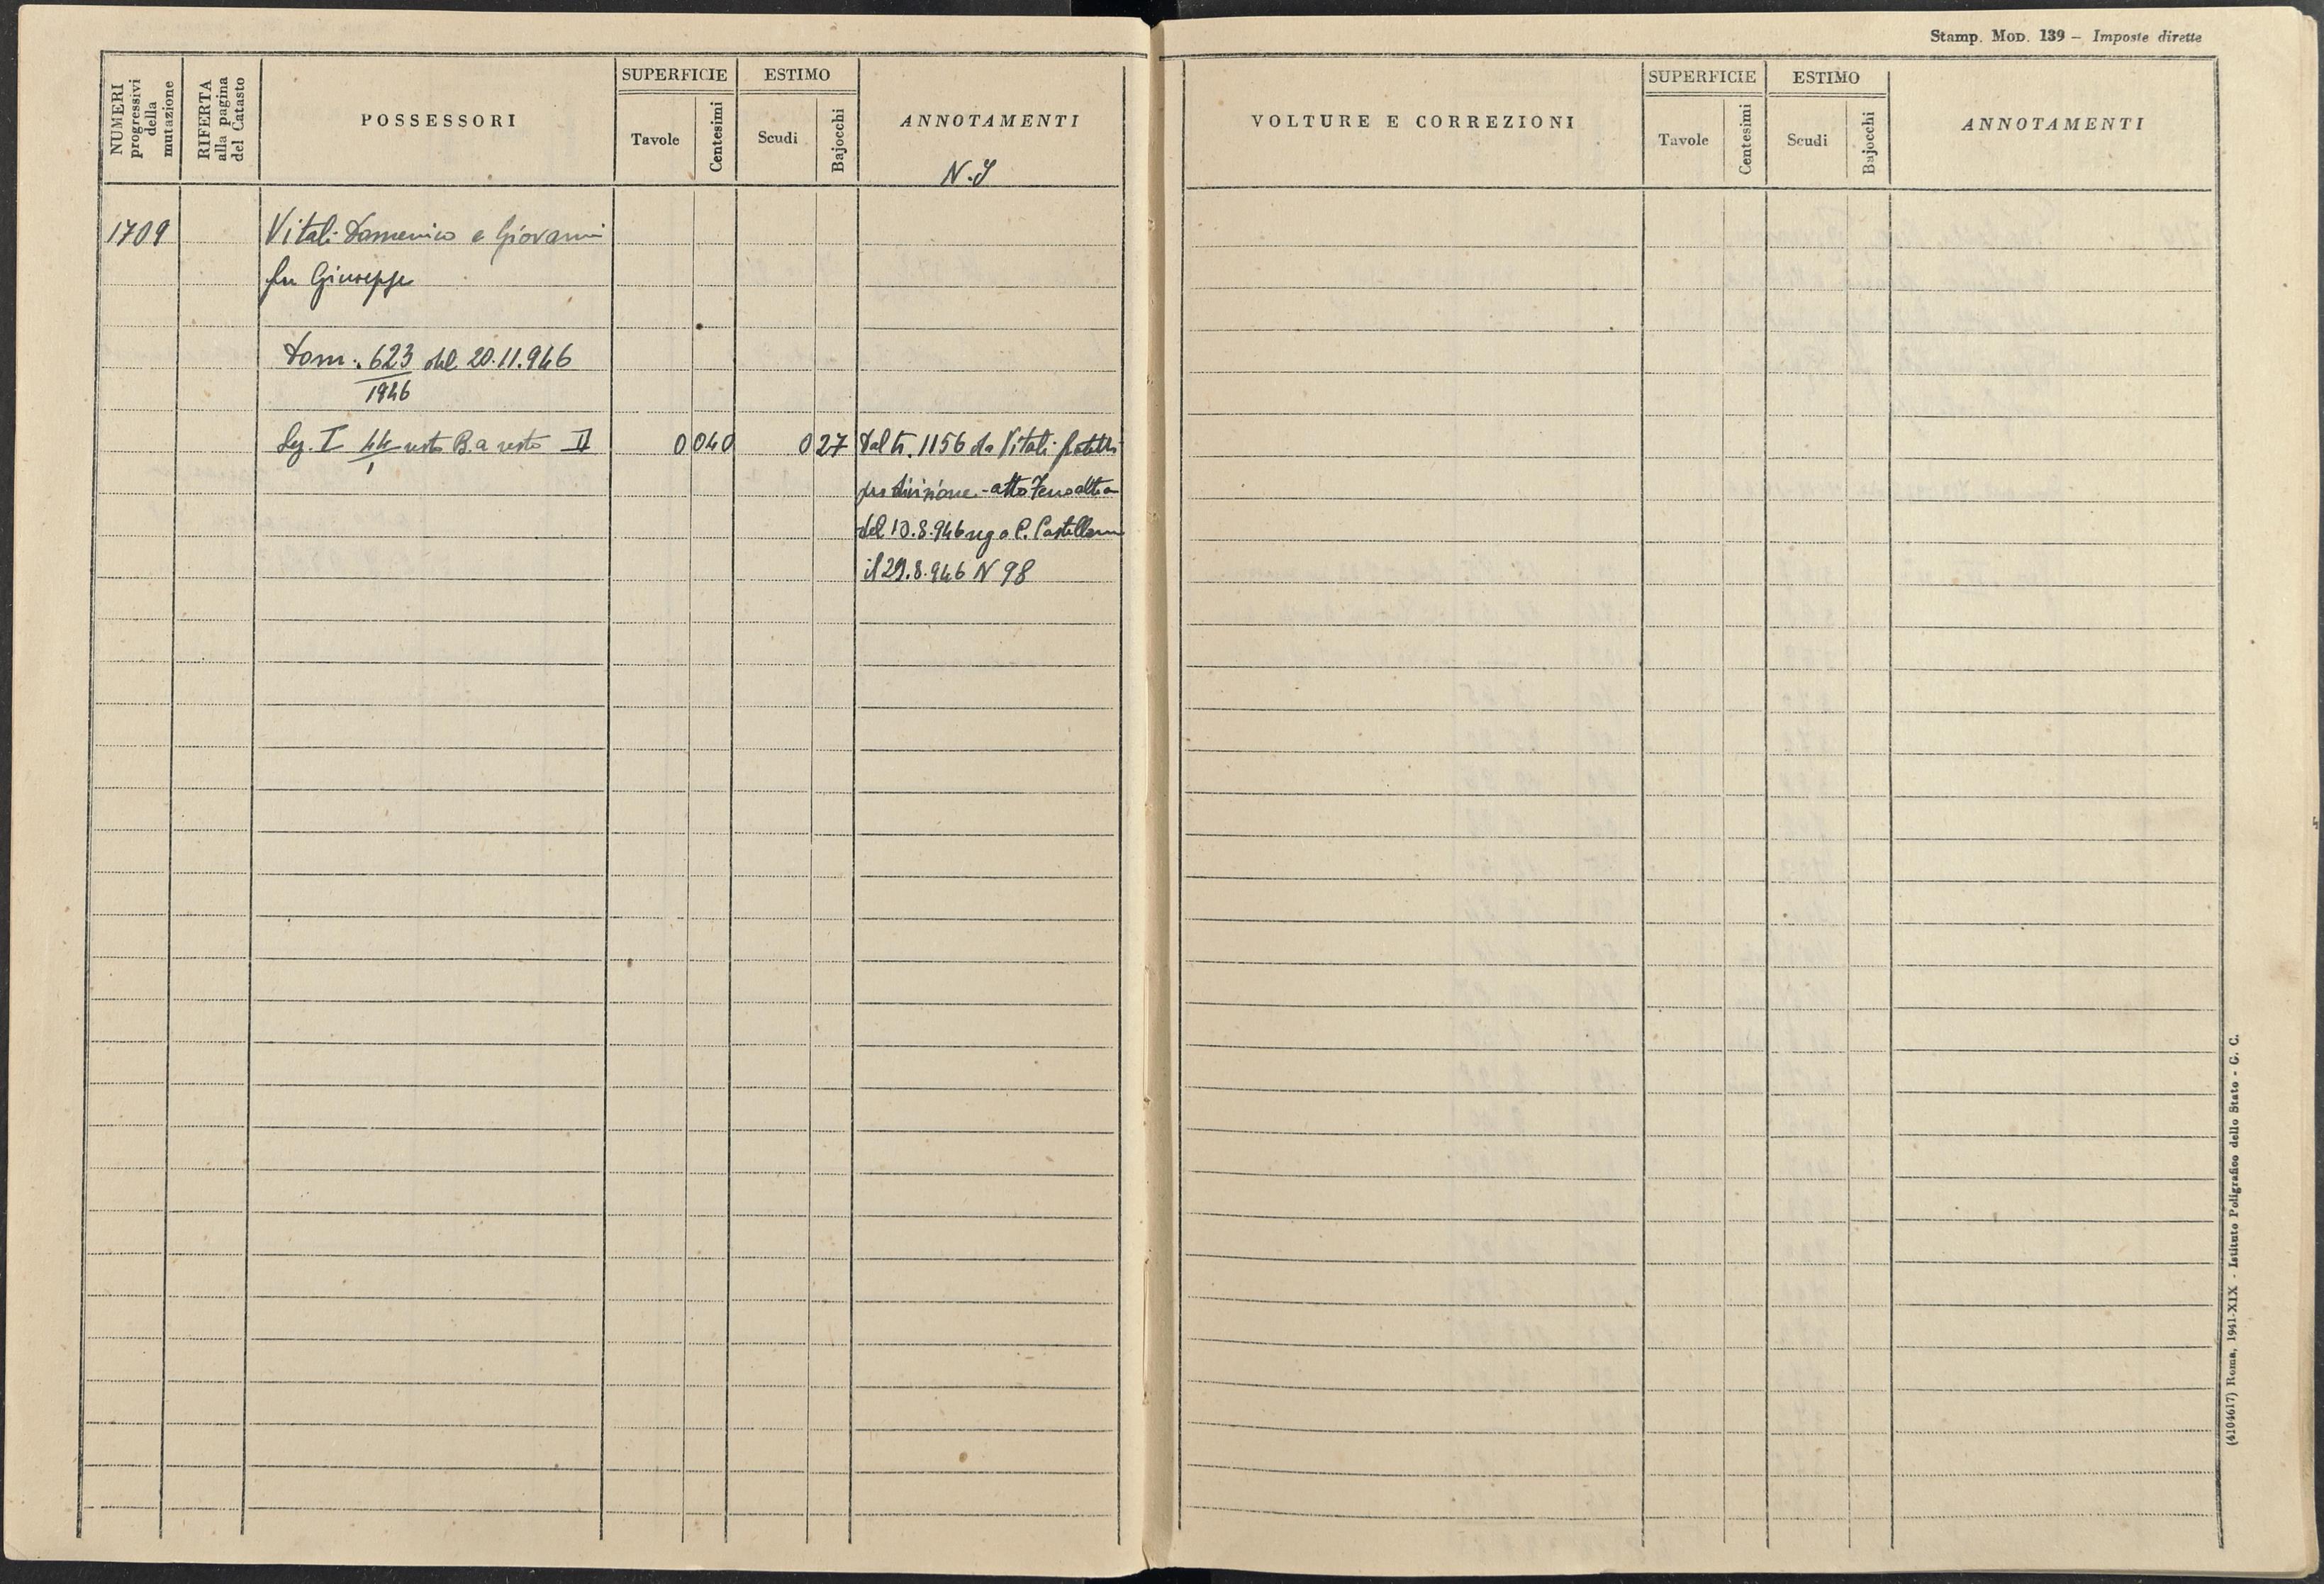 Stamp. Mod. 139 — Imposte dirette
NUMERI progressivi della mutazione
RIFERTA alla pagina del Catasto
POSSESSORI
SUPERFICIE
Tavole
Centesimi
ESTIMO
Scudi
Bajocchi
ANNOTAMENTI
VOLTURE E CORREZIONI
SUPERFICIE
Tavole
Centesimi
ESTIMO
Scudi
Bajocchi
ANNOTAMENTI
1709
Vitali Domenico e Giovanni
fu Giuseppe
Dom. 623 del 20.11.946
1946
Sez. I 44 resto B.a resto II 0 040 0 27 Dal n. 1156 da Vitali fratelli
1
per divisione - atto
del 10.8.946 reg a C. Castellana
il 29.8.946 N 98
(4104617) Roma, 1941-XIX - Istituto Poligrafico dello Stato - G. C.